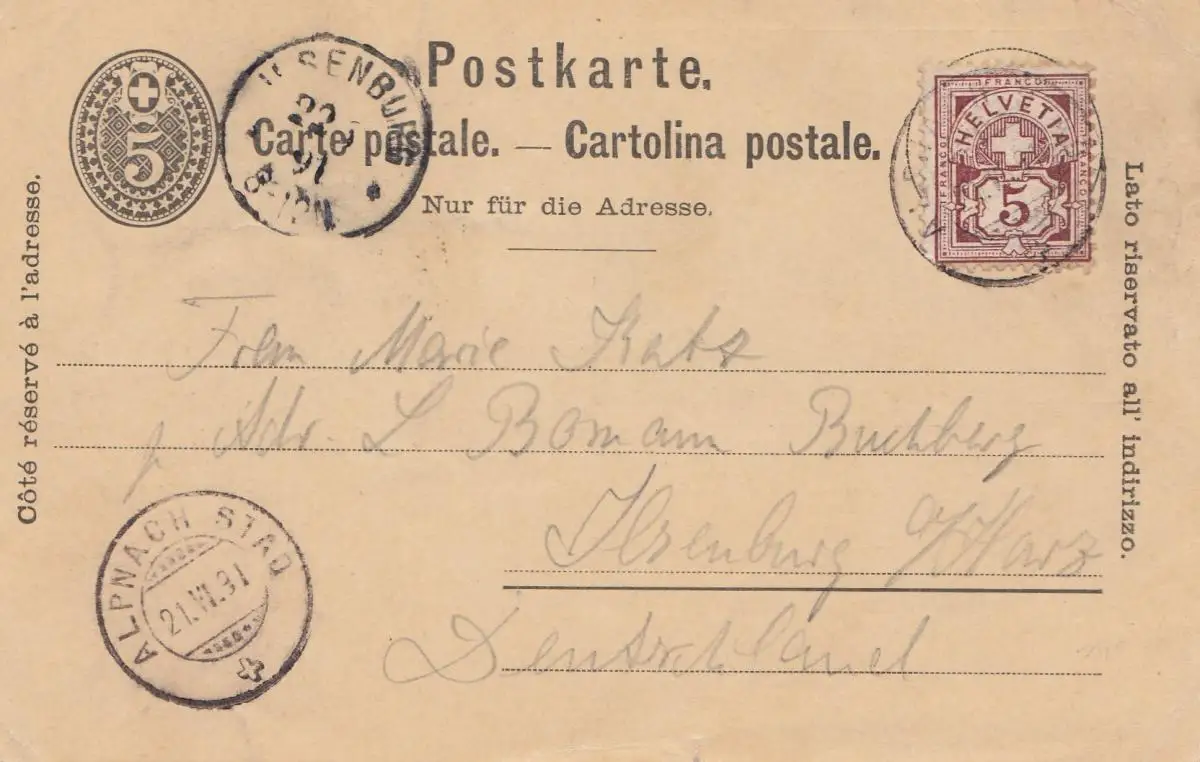 5
ILSENBURG
Postkarte.
Carte postale. — Cartolina postale.
Nur für die Adresse.
FRANCO
FRANCO HELVETIA FRANCO
5
Côté réservé à l'adresse.
Lato riservato all' indirizzo.
Frau Marie Katz
p. Adr. L Bomann Buchberg
Ilsenburg a/Harz
Deutschland
ALPNACH STAD
21.VI.91